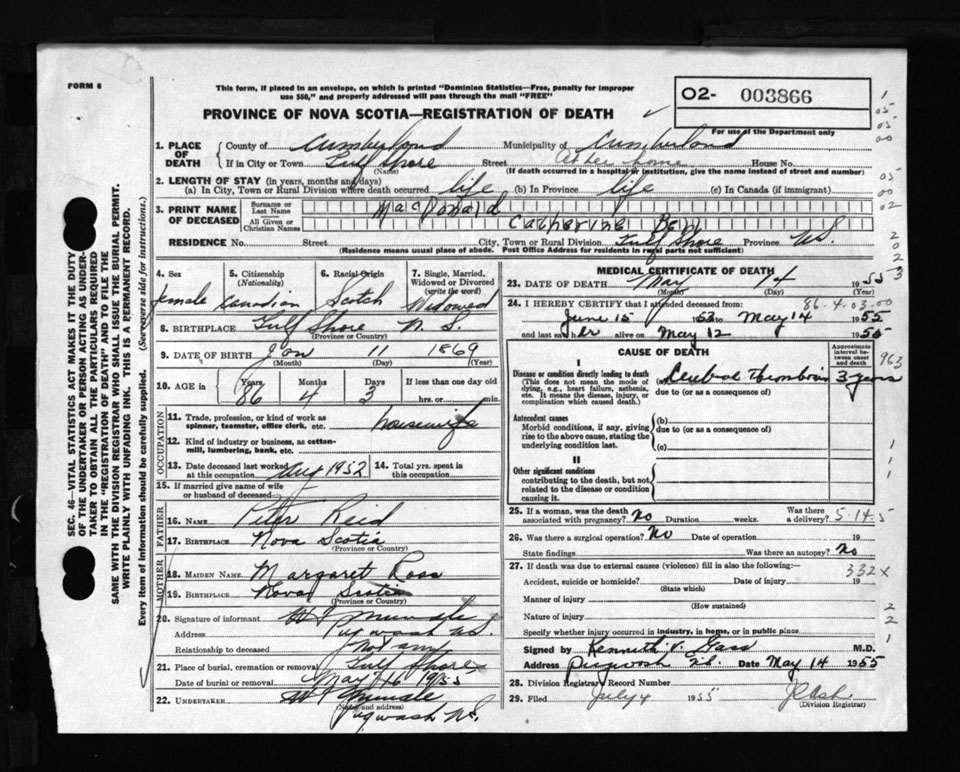 FORM 6
This form, if placed in an envelope, on which is printed "Dominion Statistics—Free, penalty for improper
use $50," and properly addressed will pass through the mail "FREE"
PROVINCE OF NOVA SCOTIA—REGISTRATION OF DEATH
O2- 003866
For use of the Department only
1. PLACE OF DEATH
County of Cumberland Municipality of Cumberland
If in City or Town Gulf Shore Street at her home House No.
(Name) (If death occurred in a hospital or institution, give the name instead of street and number)
2. LENGTH OF STAY (in years, months and days)
(a) In City, Town or Rural Division where death occurred life (b) In Province life (c) In Canada (if immigrant)
3. PRINT NAME OF DECEASED
Surname or Last Name MacDonald
All Given or Christian Names Catherine Bell
RESIDENCE No. Street City, Town or Rural Division Gulf Shore Province N.S.
(Residence means usual place of abode. Post Office Address for residents in rural parts not sufficient)
4. Sex 5. Citizenship (Nationality) 6. Racial Origin 7. Single, Married, Widowed or Divorced (write the word)
female Canadian Scotch Widowed
8. BIRTHPLACE Gulf Shore N.S.
(Province or Country)
9. DATE OF BIRTH Jan 11 1869
(Month) (Day) (Year)
10. AGE in Years Months Days If less than one day old
86 4 3 hrs. or min.
OCCUPATION
11. Trade, profession, or kind of work as spinner, teamster, office clerk, etc. housewife
12. Kind of industry or business, as cotton-mill, lumbering, bank, etc.
13. Date deceased last worked at this occupation Aug 1952 14. Total yrs. spent in this occupation
15. If married give name of wife or husband of deceased
FATHER
16. NAME Peter Reid
17. BIRTHPLACE Nova Scotia
(Province or Country)
MOTHER
18. MAIDEN NAME Margaret Ross
19. BIRTHPLACE Nova Scotia
(Province or Country)
20. Signature of informant
Address Pugwash N.S.
Relationship to deceased Not any
21. Place of burial, cremation or removal Gulf Shore
Date of burial or removal May 16 1955
22. UNDERTAKER
(Name and address) Pugwash N.S.
MEDICAL CERTIFICATE OF DEATH
23. DATE OF DEATH May 14 1955
(Month) (Day) (Year)
24. I HEREBY CERTIFY that I attended deceased from: 86-4-03-00
June 15 1953 to May 14 1955
and last saw her alive on May 12 1955
CAUSE OF DEATH
Approximate interval between onset and death
I
Disease or condition directly leading to death
(This does not mean the mode of dying, e.g., heart failure, asthenia, etc. It means the disease, injury, or complication which caused death.)
Cerebral Thrombosis 3 years
due to (or as a consequence of)
Antecedent causes
Morbid conditions, if any, giving rise to the above cause, stating the underlying condition last.
(b)
due to (or as a consequence of)
(c)
II
Other significant conditions
contributing to the death, but not related to the disease or condition causing it.
25. If a woman, was the death associated with pregnancy? No Duration weeks. Was there a delivery? 5-14-5
26. Was there a surgical operation? No Date of operation 19
State findings Was there an autopsy? No
27. If death was due to external causes (violence) fill in also the following:— 332X
Accident, suicide or homicide? Date of injury 19
(State which)
Manner of injury
(How sustained)
Nature of injury
Specify whether injury occurred in industry, in home, or in public place
Signed by Kenneth V. Gass M.D.
Address Pugwash N.S. Date May 14 1955
28. Division Registrar's Record Number
29. Filed July 4 1955
(Division Registrar)
SEC. 46—VITAL STATISTICS ACT MAKES IT THE DUTY
OF THE UNDERTAKER OR PERSON ACTING AS UNDER-
TAKER TO OBTAIN ALL THE PARTICULARS REQUIRED
IN THE "REGISTRATION OF DEATH" AND TO FILE THE
SAME WITH THE DIVISION REGISTRAR WHO SHALL ISSUE THE BURIAL PERMIT.
WRITE PLAINLY WITH UNFADING INK. THIS IS A PERMANENT RECORD.
Every item of information should be carefully supplied. (See reverse side for instructions.)
1
05
05
00
05
00
02
2
0
2
3
963
1
1
1
2
2
1